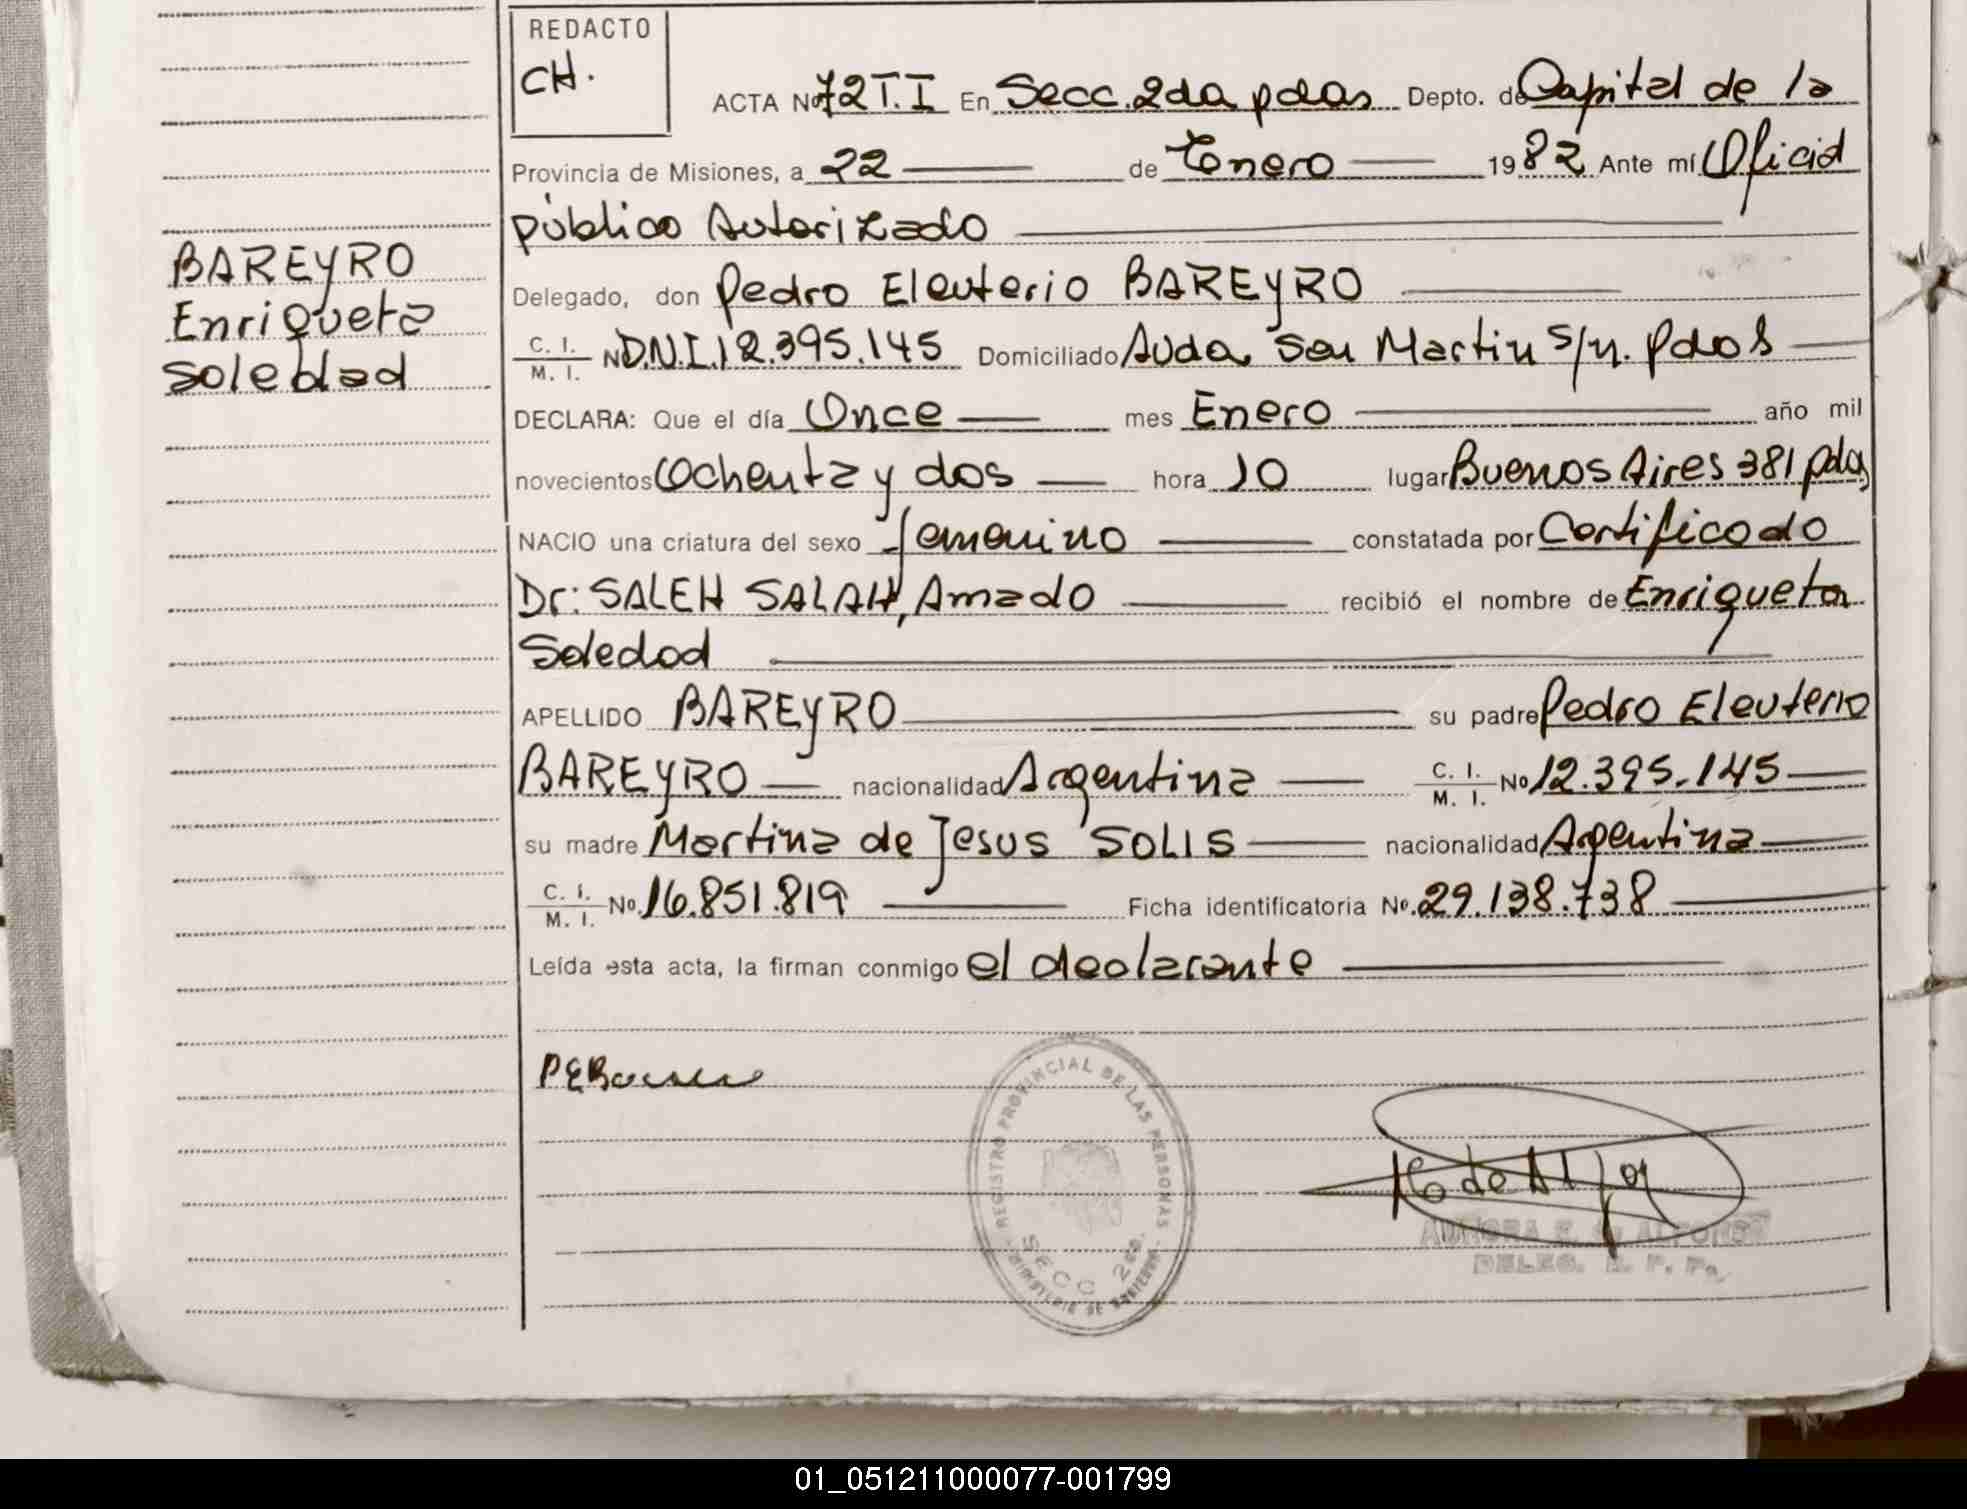 REDACTO
CH.
ACTA Nº 72 T.I En Secc. 2da pdas Depto. de Capital de la
Provincia de Misiones, a 22 de Enero 1982 Ante mí Oficial
público Autorizado
BAREYRO
Enriqueta
Soledad
Delegado, don Pedro Eleuterio BAREYRO
C. I. / M. I. Nº D.N.I. 12.395.145 Domiciliado Avda. San Martin s/n. Pdas
DECLARA: Que el día Once mes Enero año mil
novecientos Ochenta y dos hora 10 lugar Buenos Aires 381 pdas
NACIO una criatura del sexo femenino constatada por Certificado
Dr: SALEH SALAH, Amado recibió el nombre de Enriqueta
Soledad
APELLIDO BAREYRO su padre Pedro Eleuterio
BAREYRO nacionalidad Argentina C. I. / M. I. Nº 12.395.145
su madre Martina de Jesus SOLIS nacionalidad Argentina
C. I. / M. I. Nº. 16.851.819 Ficha identificatoria Nº. 29.138.738
Leída esta acta, la firman conmigo el declarante
REGISTRO PROVINCIAL DE LAS PERSONAS
SECC 2da.
MINISTERIO DE GOBIERNO
AURORA E. de ALFONSO
DELEG. R. P. Ps.
01_051211000077-001799